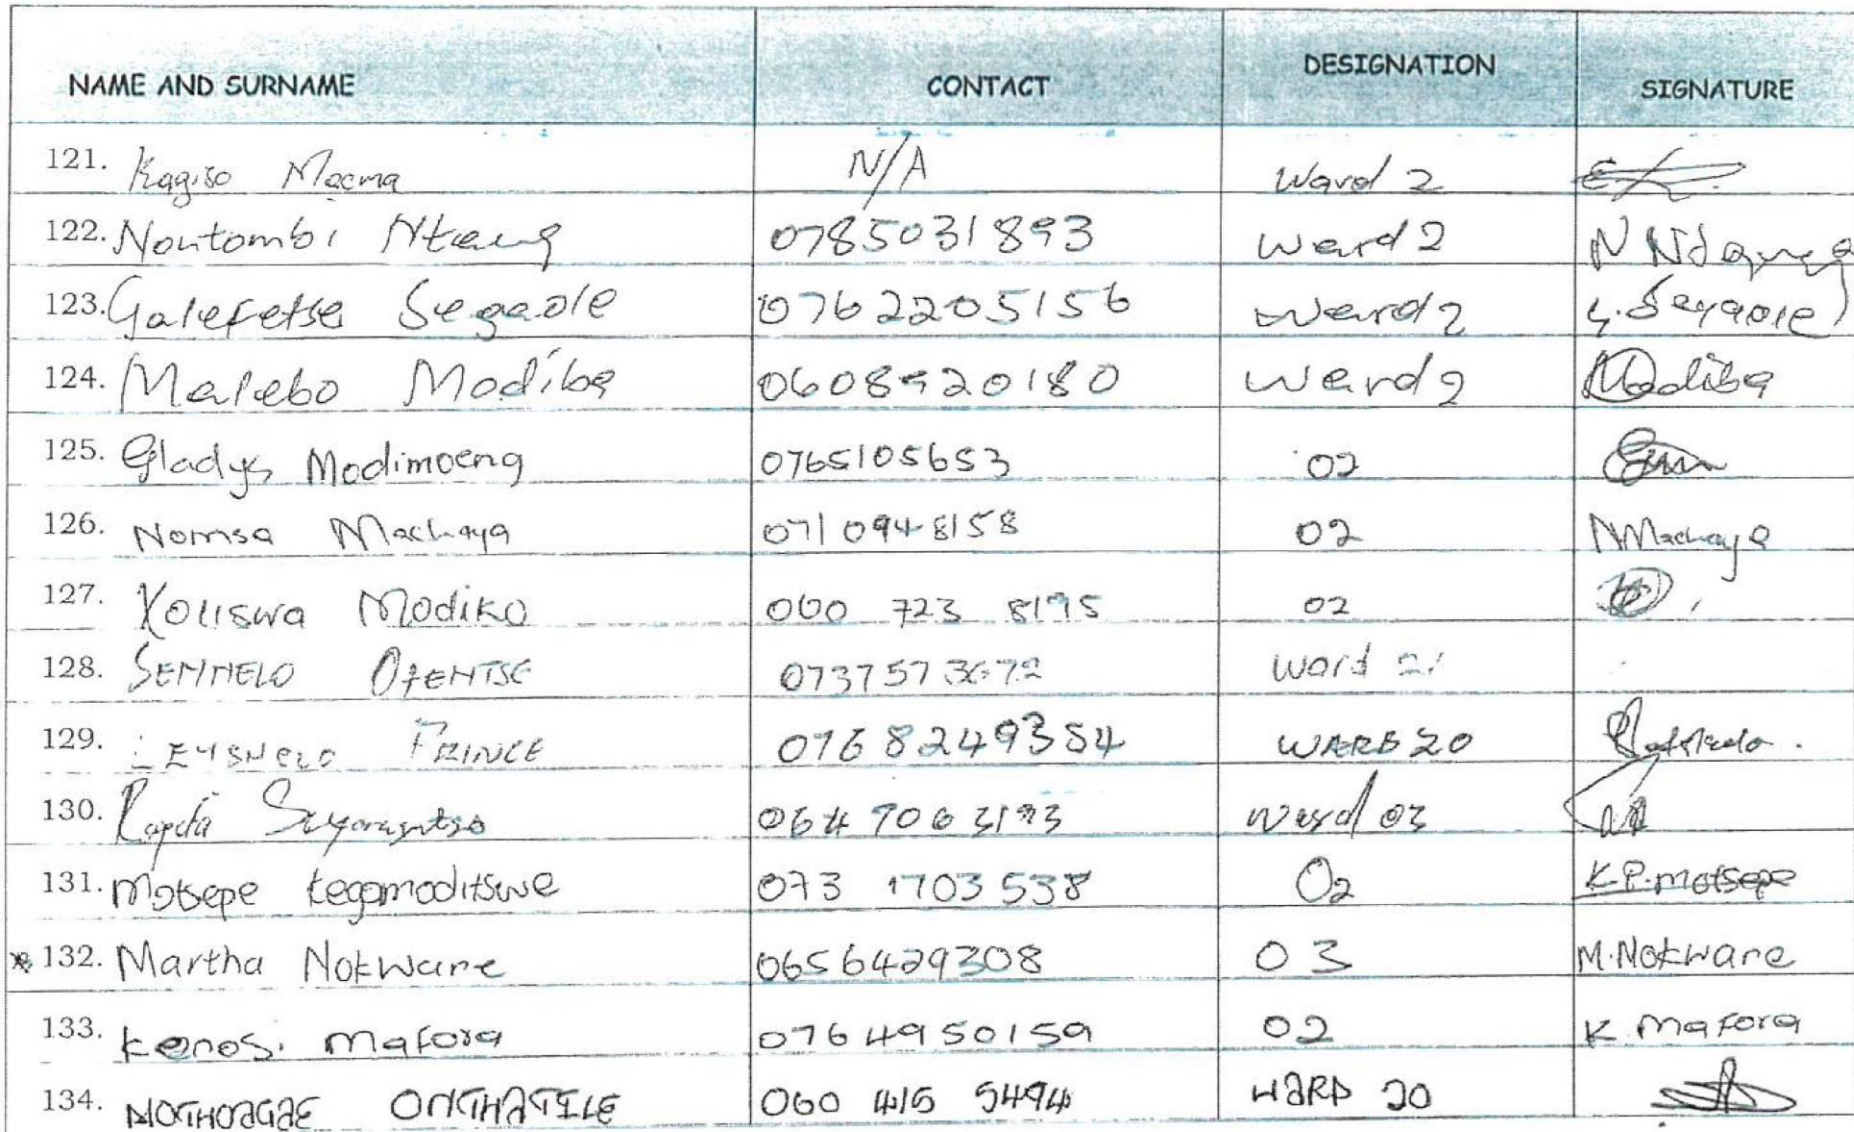 NAME AND SURNAME CONTACT DESIGNATION SIGNATURE
121. Kagiso Macma N/A Ward 2
122. Nontombi 0785031893 Ward 2 N
123. Galefetse Segaole 0762205156 Ward 2 G. Segaole
124. Malebo Modiba 0608920180 Ward 2 Modiba
125. Gladys Modimoeng 0765105653 02
126. Nomsa Machaya 0710948158 02 NMachaya
127. Xoliswa Modiko 060 723 8195 02
128. OFENTSE Ward
129. PRINCE 0768249354 WARD 20
130. Ward 03
131. Motsepe kegomoditswe 073 1703 538 02 K.P.motsepe
132. Martha Nokware 0656429308 03 M.Nokware
133. kenosi mafora 0764950159 02 K mafora
134. ONTHATILE 060 415 5494 WARD 20